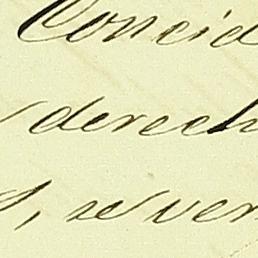 Concid
derech
s, se ver